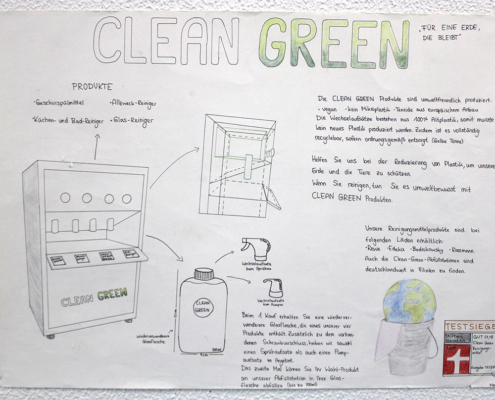 CLEAN GREEN
„FÜR EINE ERDE,
DIE BLEIBT"
PRODUKTE
-Geschirrspülmittel
-Allzweck-Reiniger
-Küchen und Bad-Reiniger
-Glas-Reiniger
Die CLEAN GREEN Produkte sind umweltfreundlich produziert.
- vegan - kein Mikroplastik - Tenside aus europäischem Anbau
Die Wechselaufsätze bestehen aus 100% Altplastik, somit musste
kein neues Plastik produziert werden. Zudem ist es vollständig
recycelbar, sofern ordnungsgemäß entsorgt. (Gelbe Tonne)
Helfen Sie uns bei der Reduzierung von Plastik, um unsere
Erde und die Tiere zu schützen.
Wenn Sie reinigen, tun Sie es umweltbewusst mit
CLEAN GREEN Produkten.
Unsere Reinigungsmittelprodukte sind bei
folgenden Läden erhältlich:
-Rewe -Edeka -Budnikowsky -Rossmann
Auch die Clean-Green-Abfüllstationen sind
deutschlandweit in Filialen zu finden.
CLEAN GREEN
Wechselaufsatz
zum Sprühen
Wechselaufsatz
zum Pumpen
CLEAN
GREEN
wiederverwendbare
Glasflasche
Beim 1. Kauf erhalten Sie eine wiederver-
wendbare Glasflasche, die eines unserer vier
Produkte enthält. Zusätzlich zu dem vorhan-
denen Schraubverschluss, haben wir sowohl
einen Sprühaufsatz als auch einen Pump-
aufsatz im Angebot.
Das zweite Mal können Sie Ihr Wahl-Produkt
an unserer Abfüllstation in Ihre Glas-
flasche abfüllen
TESTSIEGER
GUT